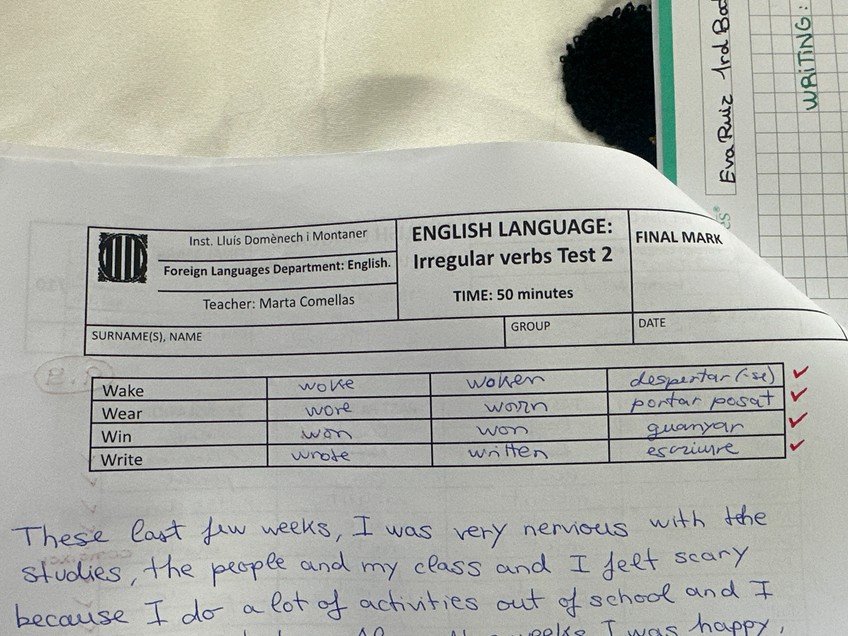 WRITING:
Eva Ruiz 1rd Bat
Inst. Lluís Domènech i Montaner
Foreign Languages Department: English.
Teacher: Marta Comellas
ENGLISH LANGUAGE:
Irregular verbs Test 2
TIME: 50 minutes
FINAL MARK
SURNAME(S), NAME
GROUP
DATE
Wake woke woken despertar(-se)
Wear wore worn portar posat
Win won won guanyar
Write wrote written escriure
These last few weeks, I was very nervious with the
studies, the people and my class and I felt scary
because I do a lot of activities out of school and I
weeks I was happy,